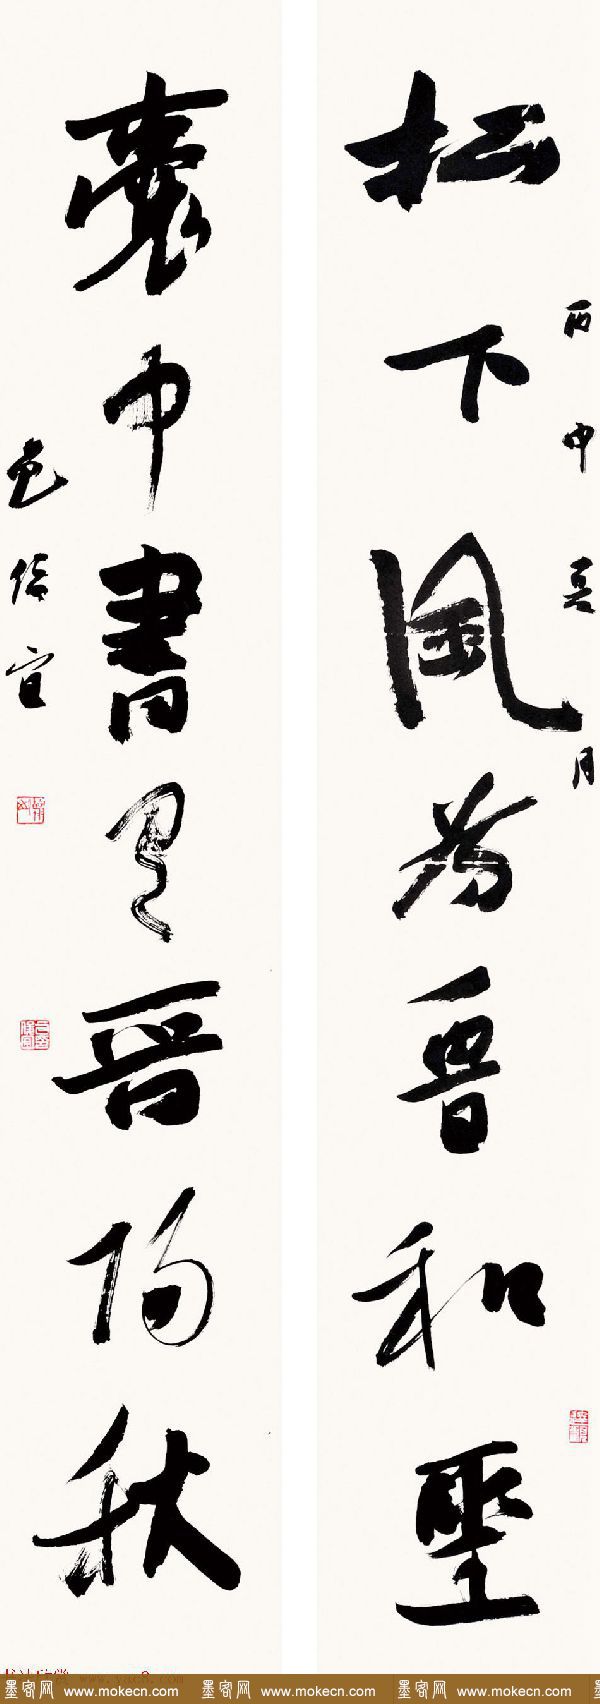 松下風為魯和聖
丙申夏月
囊中書是晉陽秋
包俊宜
墨客网 www.mokecn.com 墨客网 www.mokecn.com 墨客网 www.mokecn.com